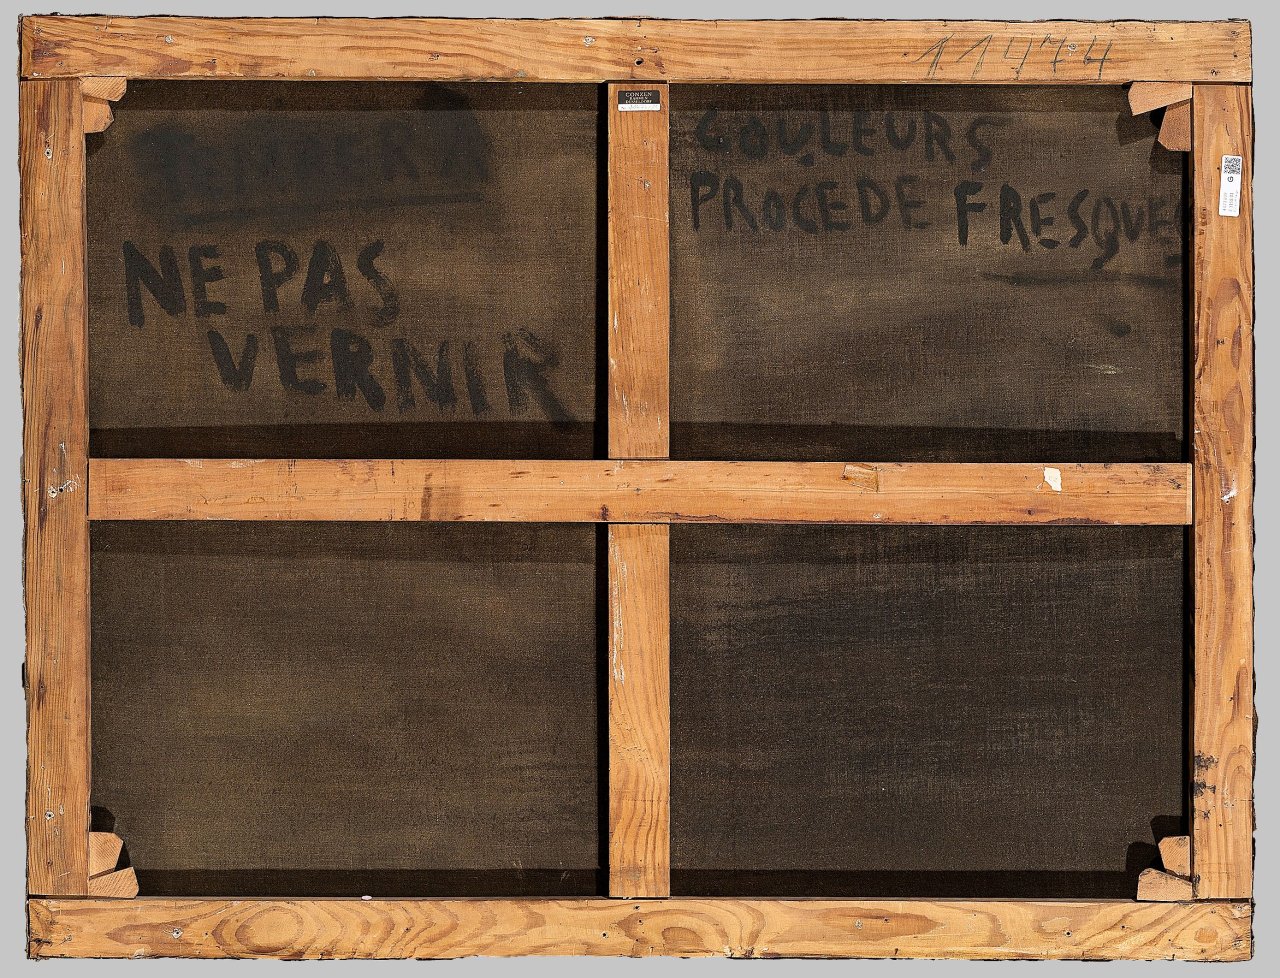 11474
CONZEN
DÜSSELDORF
COULEURS
PROCEDE FRESQUE
NE PAS
VERNIR
G